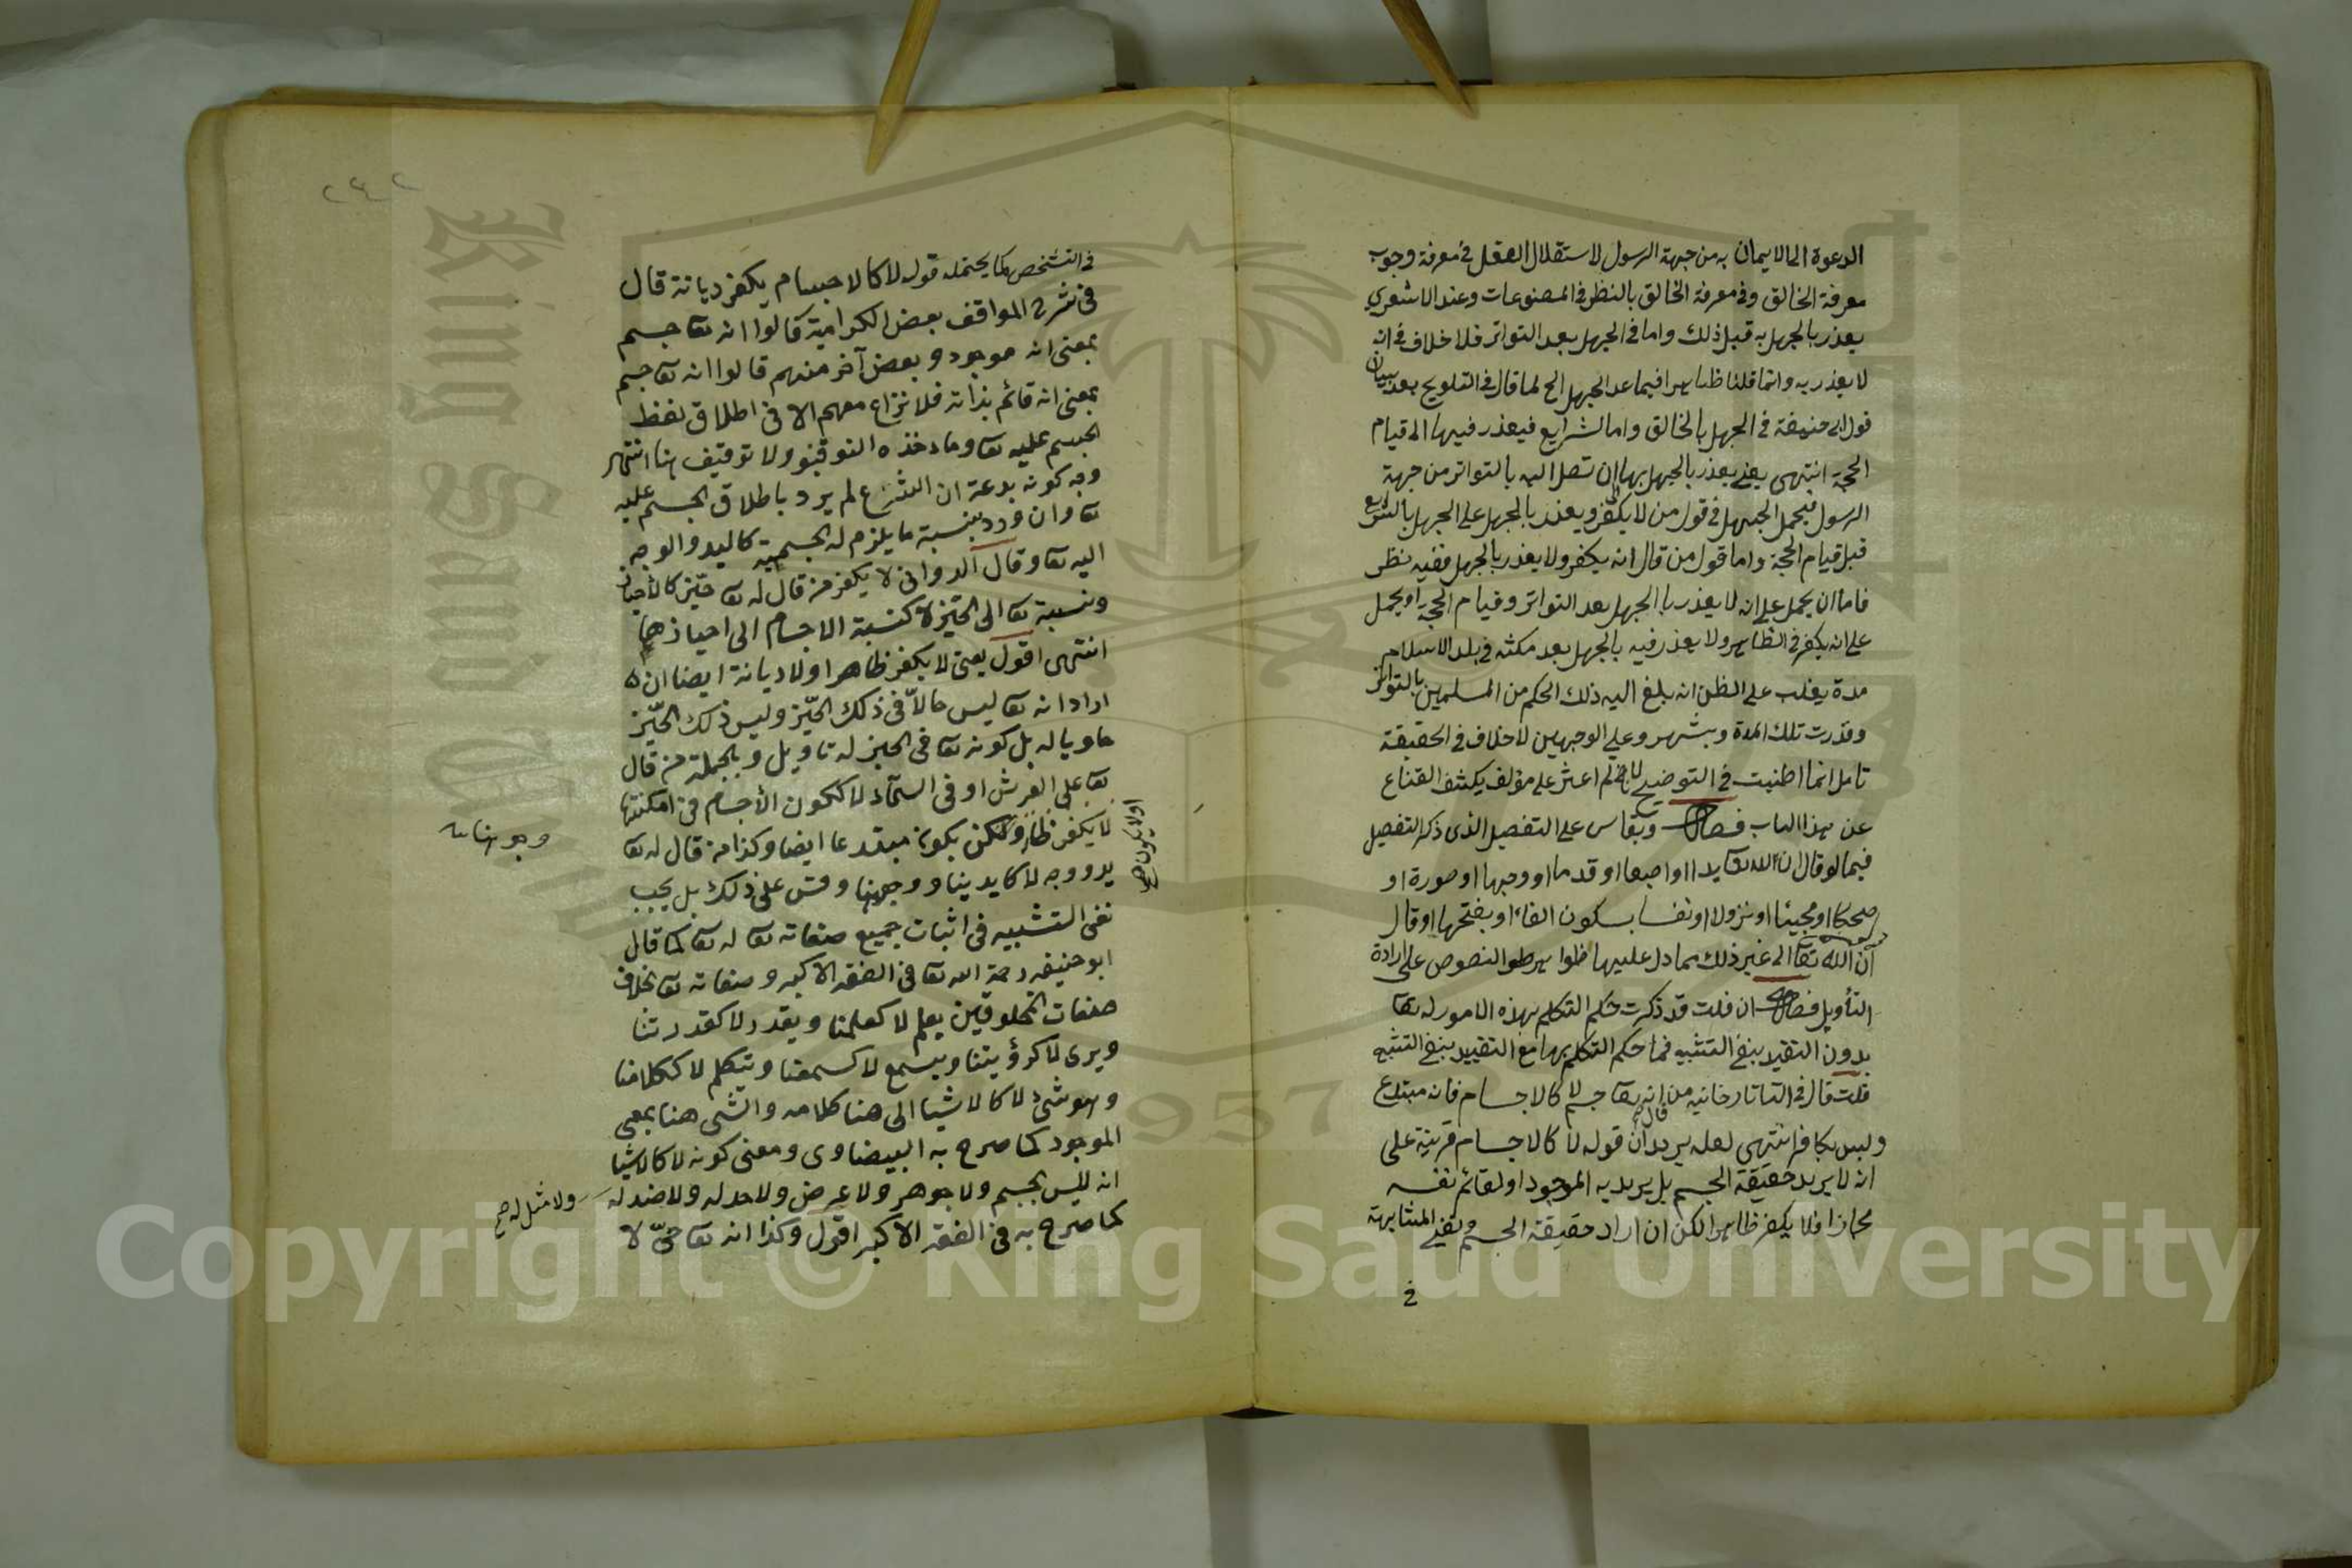 الدعوة الى الايمان به من جهة الرسول لاستقلال العقل في معرفة وجوب
معرفة الخالق وفي معرفة الخالق بالنظر في المصنوعات وعند الاشعري
يعذر بالجهل به قبل ذلك واما في الجهل بعد التواتر فلا خلاف في انه
لا يعذر به وانما قلنا ظاهرا فيما عد الجهل الح لما قال في التلويح بعد بيان
قول ابى حنيفة في الجهل بالخالق واما الشرايع فيعذر فيها الى قيام
الحجة انتهى يعني يعذر بالجهل بها الى ان تصل اليه بالتواتر من جهة
الرسول فيحمل الجهل في قول من لا يكفر ويعذر بالجهل على الجهل بالشرايع
قبل قيام الحجة واما قول من قال انه يكفر ولا يعذر بالجهل ففيه نظر
فاما ان يحمل على انه لا يعذر بالجهل بعد التواتر وقيام الحجة او يحمل
على انه يكفر في الظاهر ولا يعذر فيه بالجهل بعد مكثه في بلد الاسلام
مدة يغلب على الظن انه بلغ اليه ذلك الحكم من المسلمين بالتواتر
وقدرت تلك المدة وبشهر وعلى الوجهين لا خلاف في الحقيقة
تامل انما اطنبت في التوضيح لانى لم اعثر على مؤلف يكشف القناع
عن هذا الباب فصل ويقاس على التفصيل الذى ذكر التفصيل
فيما لو قال ان لله تعا يدا او اصبعا او قدما او وجها او صورة او
ضحكا او مجيئا او نزولا او نفسا بسكون الفاء او بفتحها او قال
ان الله تعا الى غير ذلك مما دل عليها ظواهر النصوص على ارادة
التأويل فصل ان قلت قد ذكرت حكم التكلم بهذه الامور له تعا
بدون التقييد بنفي التشبيه فما حكم التكلم بها مع التقييد بنفي التشبيه
قلت قال في التاتارخانيه من قال انه تعا جسم لا كالاجسام فانه مبتدع
وليس بكافر انتهى لعله يريد ان قوله لا كالاجسام قرينة على
انه لا يريد حقيقة الجسم بل يريد به الموجود او القائم بنفسه
مجازا فلا يكفر ظاهرا لكن ان اراد حقيقة الجسم ونفي المشابهة
في
٢٤٢
في التشخص كما يحتمله قوله لا كالاجسام يكفر ديانة قال
في شرح المواقف بعض الكرامية قالوا انه تعا جسم
بمعنى انه موجود وبعض آخر منهم قالوا انه تعا جسم
بمعنى انه قائم بذاته فلا نزاع معهم الا في اطلاق لفظ
الجسم عليه تعا وماخذه التوقيف ولا توقيف هنا انتهى
وجه كونه بدعة ان الشرع لم يرد باطلاق الجسم عليه
تعا وان ورد بنسبة ما يلزم له الجسمية كاليد والوجه
اليه تعا وقال الدوانى لا يكفر من قال له تعا حيّز كالاحياز
ونسبة تعا الى الحيّز لا كنسبة الاجسام الى احيازها
انتهى اقول يعنى لا يكفر ظاهرا ولا ديانة ايضا ان
اراد انه تعا ليس حالّا في ذلك الحيّز وليس ذلك الحيّز
حاويا له بل كونه تعا في الحيز له تاويل وبالجملة من قال
تعا على العرش او في السماء لا ككون الأجسام في امكنتها
لا يكفر ظاهرا ولكن يكون مبتدعا ايضا وكذا من قال له تعا
او لا يكون صح
يد ووجه لا كايدينا ووجهنا وقس على ذلك بل يجب
وجوهنا
نفى التشبيه في اثبات جميع صفاته تعا له تعا كما قال
ابو حنيفه رحمة الله تعا في الفقه الاكبر وصفاته تعا بخلاف
صفات المخلوقين يعلم لا كعلمنا ويقدر لا كقدرتنا
ويرى لا كرؤيتنا ويسمع لا كسمعنا وتيكلم لا ككلامنا
وهو شئ لا كالاشيا الى هنا كلامه والشئ هنا بمعى
الموجود كما صرح به البيضاوى ومعنى كونه لا كالاشيا
انه لليس بجسم ولا جوهر ولا عرض ولا حد له ولا ضد له
ولا مثل له صح
كما صرح به في الفقه الاكبر اقول وكذا انه تعا حىّ لا
King Saud University
1957
Copyright © King Saud University